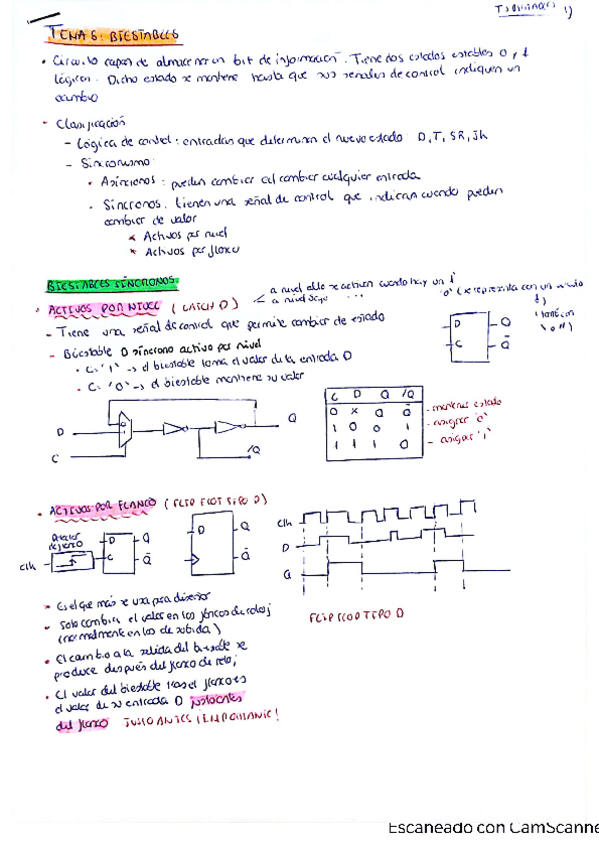 1)
TEMA 6: BIESTABLES
• Circuito capaz de almacenar un bit de información. Tiene dos estados estables 0 y 1
lógicos. Dicho estado se mantiene hasta que sus señales de control indiquen un
cambio
- Clasificación
- Lógica de control: entradas que determinan el nuevo estado D, T, SR, Jk
- Sincronismo:
• Asíncronos: pueden cambiar al cambiar cualquier entrada
• Síncronos. tienen una señal de control que indican cuando pueden
cambiar de valor
* Activos por nivel
* Activos por flanco
BIESTABLES SÍNCRONOS:
• ACTIVOS POR NIVEL (LATCH D)
a nivel alto se activan cuando hay un 1
a nivel bajo ... '0' (se representa con un
- Tiene una señal de control que permite cambiar de estado
- Biestable D síncrono activo por nivel
• C='1' -> el biestable toma el valor de la entrada D
• C='0' -> el biestable mantiene su valor
D Q
C Q̄
D
C
Q
/Q
C D Q /Q
0 x Q Q̄ - mantener estado
1 0 0 1 - asignar '0'
1 1 1 0 - asignar '1'
• ACTIVOS POR FLANCO (FLIP FLOP TIPO D)
Detector
de flanco
Clk
D Q
C Q̄
D Q
Q̄
Clk
D
Q
FLIP FLOP TIPO D
* Es el que más se usa para diseñar
* Solo cambia el valor en los flancos de reloj
(normalmente en los de subida)
• El cambio a la salida del biestable se
produce después del flanco de reloj
• El valor del biestable tras el flanco es
el valor de su entrada D justo antes
del flanco JUSTO ANTES ¡IMPORTANTE!
Escaneado con CamScanne